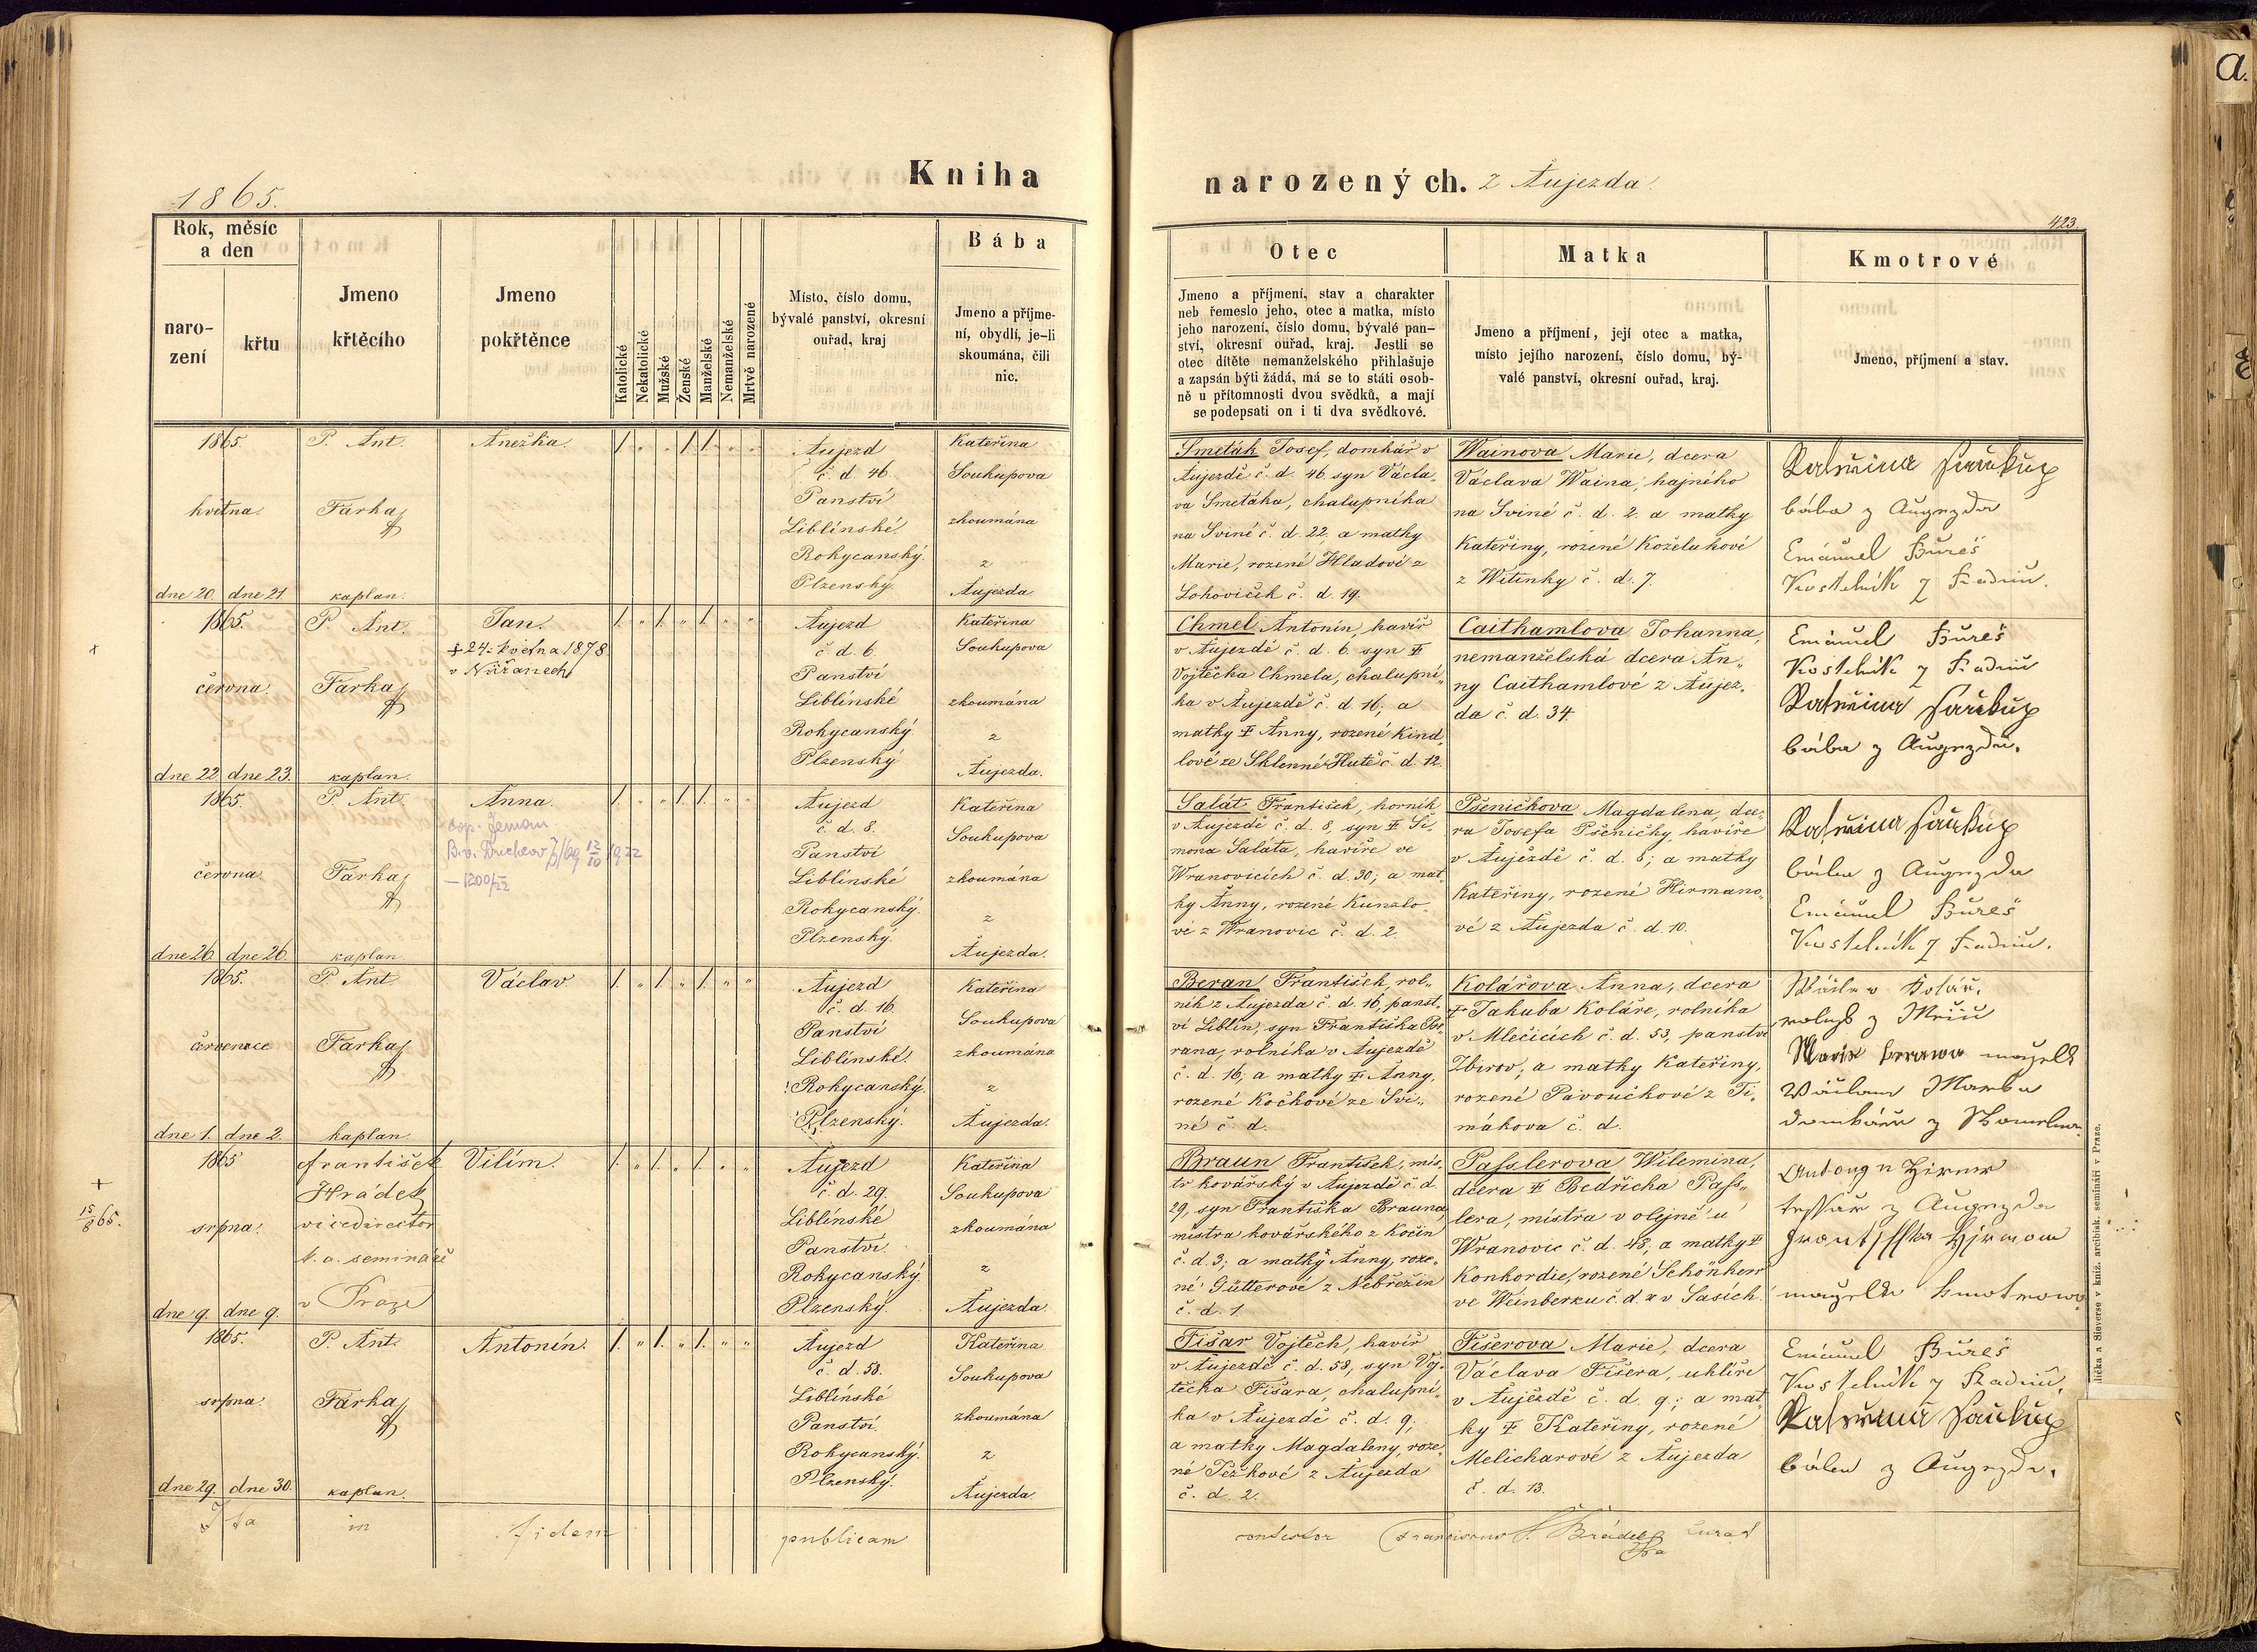 1865.
Kniha
narozených. z Aujezda.
423.
a.
Rok, měsíc
a den
naro-
zení
křtu
Jmeno
křtěcího
Jmeno
pokřtěnce
Katolické
Nekatolické
Mužské
Ženské
Manželské
Nemanželské
Mrtvě narozené
Místo, číslo domu,
bývalé panství, okresní
ouřad, kraj
Bába
Jmeno a příjme-
ní, obydlí, je-li
skoumána, čili
nic.
Otec
Jmeno a příjmení, stav a charakter
neb řemeslo jeho, otec a matka, místo
jeho narození, číslo domu, bývalé pan-
ství, okresní ouřad, kraj. Jestli se
otec dítěte nemanželského přihlašuje
a zapsán býti žádá, má se to státi osob-
ně u přítomnosti dvou svědků, a mají
se podepsati on i ti dva svědkové.
Matka
Jmeno a příjmení, její otec a matka,
místo jejího narození, číslo domu, bý-
valé panství, okresní ouřad, kraj.
Kmotrové
Jmeno, příjmení a stav.
1865.
května.
dne 20. dne 21
P. Ant.
Farka
kaplan.
Anežka
1. „ „ 1. 1. „ „
Aujezd
č. d. 46.
Panství
Liblínské
Rokycanský.
Plzenský.
Kateřina
Soukupova
zkoumána
z
Aujezda
Smeták Josef, domkář v
Aujezdě č. d. 46. syn Václa„
va Smetáka, chalupníka
na Sviné č. d. 22, a matky
Marie, rozené Hladové z
Lohoviček č. d. 19.
Wainova Marie, dcera
Václava Waina, hajného
na Sviné č. d. 2. a matky
Kateřiny, rozené Koželuhové
z Witinky č. d. 7.
Kateřina Saukup
bába z Augezda
Emanuel Bureš
Kostelnik z Radnic.
1865.
června.
dne 22. dne 23.
P. Ant.
Farka
kaplan.
Jan.
‡ 24. května 1878
v Nýřanech
1. „ 1. „ 1. „ „
Aujezd
č. d. 6.
Panství
Liblínské
Rokycanský.
Plzenský
Kateřina
Soukupova
zkoumána
z
Aujezda.
Chmel Antonín, havíř
v Aujezdě č. d. 6. syn ‡
Vojtěcha Chmela, chalupní„
ka v Aujezdě č. d. 16; a
matky ‡ Anny, rozené Kind„
lové ze Sklenné Hutě č. d. 12.
Caithamlova Johanna,
nemanželská dcera An„
ny Caithamlové z Aujez„
da č. d. 34.
Emanuel Bureš
Kostelnik z Radnic
Kateřina Saukup
bába z Augezda.
1865.
června
dne 26. dne 26.
P. Ant.
Farka
kaplan
Anna.
1. „ „ 1. 1. „ „
Aujezd
č. d. 8.
Panství
Liblínské
Rokycanský.
Plzenský.
Kateřina
Soukupova
zkoumána
z
Aujezda.
Salát František, horník
v Aujezdě č. d. 8, syn ‡ Ši„
mona Saláta, havíře ve
Wranovicích č. d. 30; a mat„
ky Anny, rozené Kunzlo„
vé z Wranovic č. d. 2.
Pšeničkova Magdalena, dce„
ra Josefa Pšeničky, havíře
v Aujezdě č. d. 8; a matky
Kateřiny, rozené Hirmano„
vé z Aujezda č. d. 10.
Kateřina Saukup
bába z Augezda
Emanuel Bureš
Kostelnik z Radnic.
1865.
července
dne 1. dne 2.
P. Ant.
Farka
kaplan
Václav
1. „ 1. „ 1. „ „
Aujezd
č. d. 16.
Panství
Liblínské.
Rokycanský.
Plzenský.
Kateřina
Soukupova
zkoumána
z
Aujezda.
Beran František, rol„
ník z Aujezda č. d. 16, panst„
ví Liblín, syn Františka Be„
rana, rolníka v Aujezdě
č. d. 16, a matky ‡ Anny,
rozené Kočkové ze Svi„
né č. d.
Kolářova Anna, dcera
‡ Jakuba Koláře, rolníka
v Mlečicích č. d. 53, panství
Zbirov, a matky Kateřiny,
rozené Pavoučkové z Ti„
mákova č. d.
Kolář.
Václav
+
15/8 65.
1865
srpna.
dne 9. dne 9.
František
Hrádek
vicedirector
k. a. semináře
v Praze
Vilím.
1. „ 1. „ 1. „ „
Aujezd
č. d. 29.
Liblínské
Panství.
Rokycanský.
Plzenský.
Kateřina
Soukupova
zkoumána
z
Aujezda.
Braun František, mis„
tr kovářský v Aujezdě č. d.
29, syn Františka Brauna,
mistra kovářského z Kočín
č. d. 3; a matky Anny, roze„
né Gütterové z Nebřežin
č. d. 1
Passlerova Wilemina,
dcera ‡ Bedřicha Pass„
lera, mistra v olejně u
Wranovic č. d. 48, a matky ‡
Konkordie, rozené Schönherr
ve Weinberku č. d. x v Sasích.
tessař z Augezda
manzelka kmotrowa
1865.
srpna.
dne 29. dne 30.
P. Ant.
Farka
kaplan.
Antonín.
1. „ 1. „ 1. „ „
Aujezd
č. d. 58.
Liblínské
Panství.
Rokycanský.
Plzenský.
Kateřina
Soukupova
zkoumána
z
Aujezda.
Fišar Vojtěch, havíř
v Aujezdě č. d. 58, syn Voj„
těcha Fišara, chalupní„
ka v Aujezdě č. d. 9,
a matky Magdaleny, roze„
né Ježkové z Aujezda
č. d. 2.
Fišerova Marie, dcera
Václava Fišera, uhlíře
v Aujezdě č. d. 9; a mat„
ky ‡ Kateřiny, rozené
Melicharové z Aujezda
č. d. 13.
Emanuel Bureš
Kostelnik z Radnic.
Kateřina Saukup
bába z Augezda.
Ita in fidem publicam contestor Franciscus
lička a Sieverse v kniž. arcibisk. semináři v Praze.